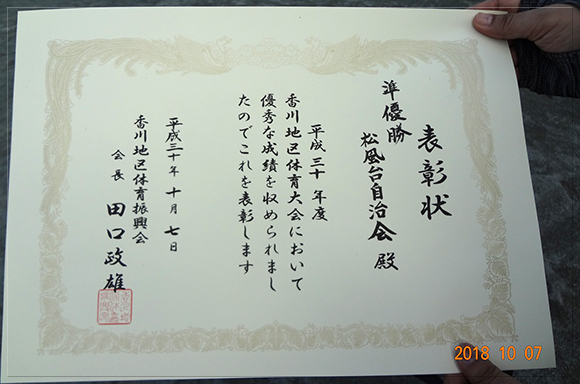 表彰状
準優勝
松風台自治会殿
平成三十年度
香川地区体育大会において
優秀な成績を収められまし
たのでこれを表彰します
平成三十年十月七日
香川地区体育振興会
会長 田口政雄
2018 10 07